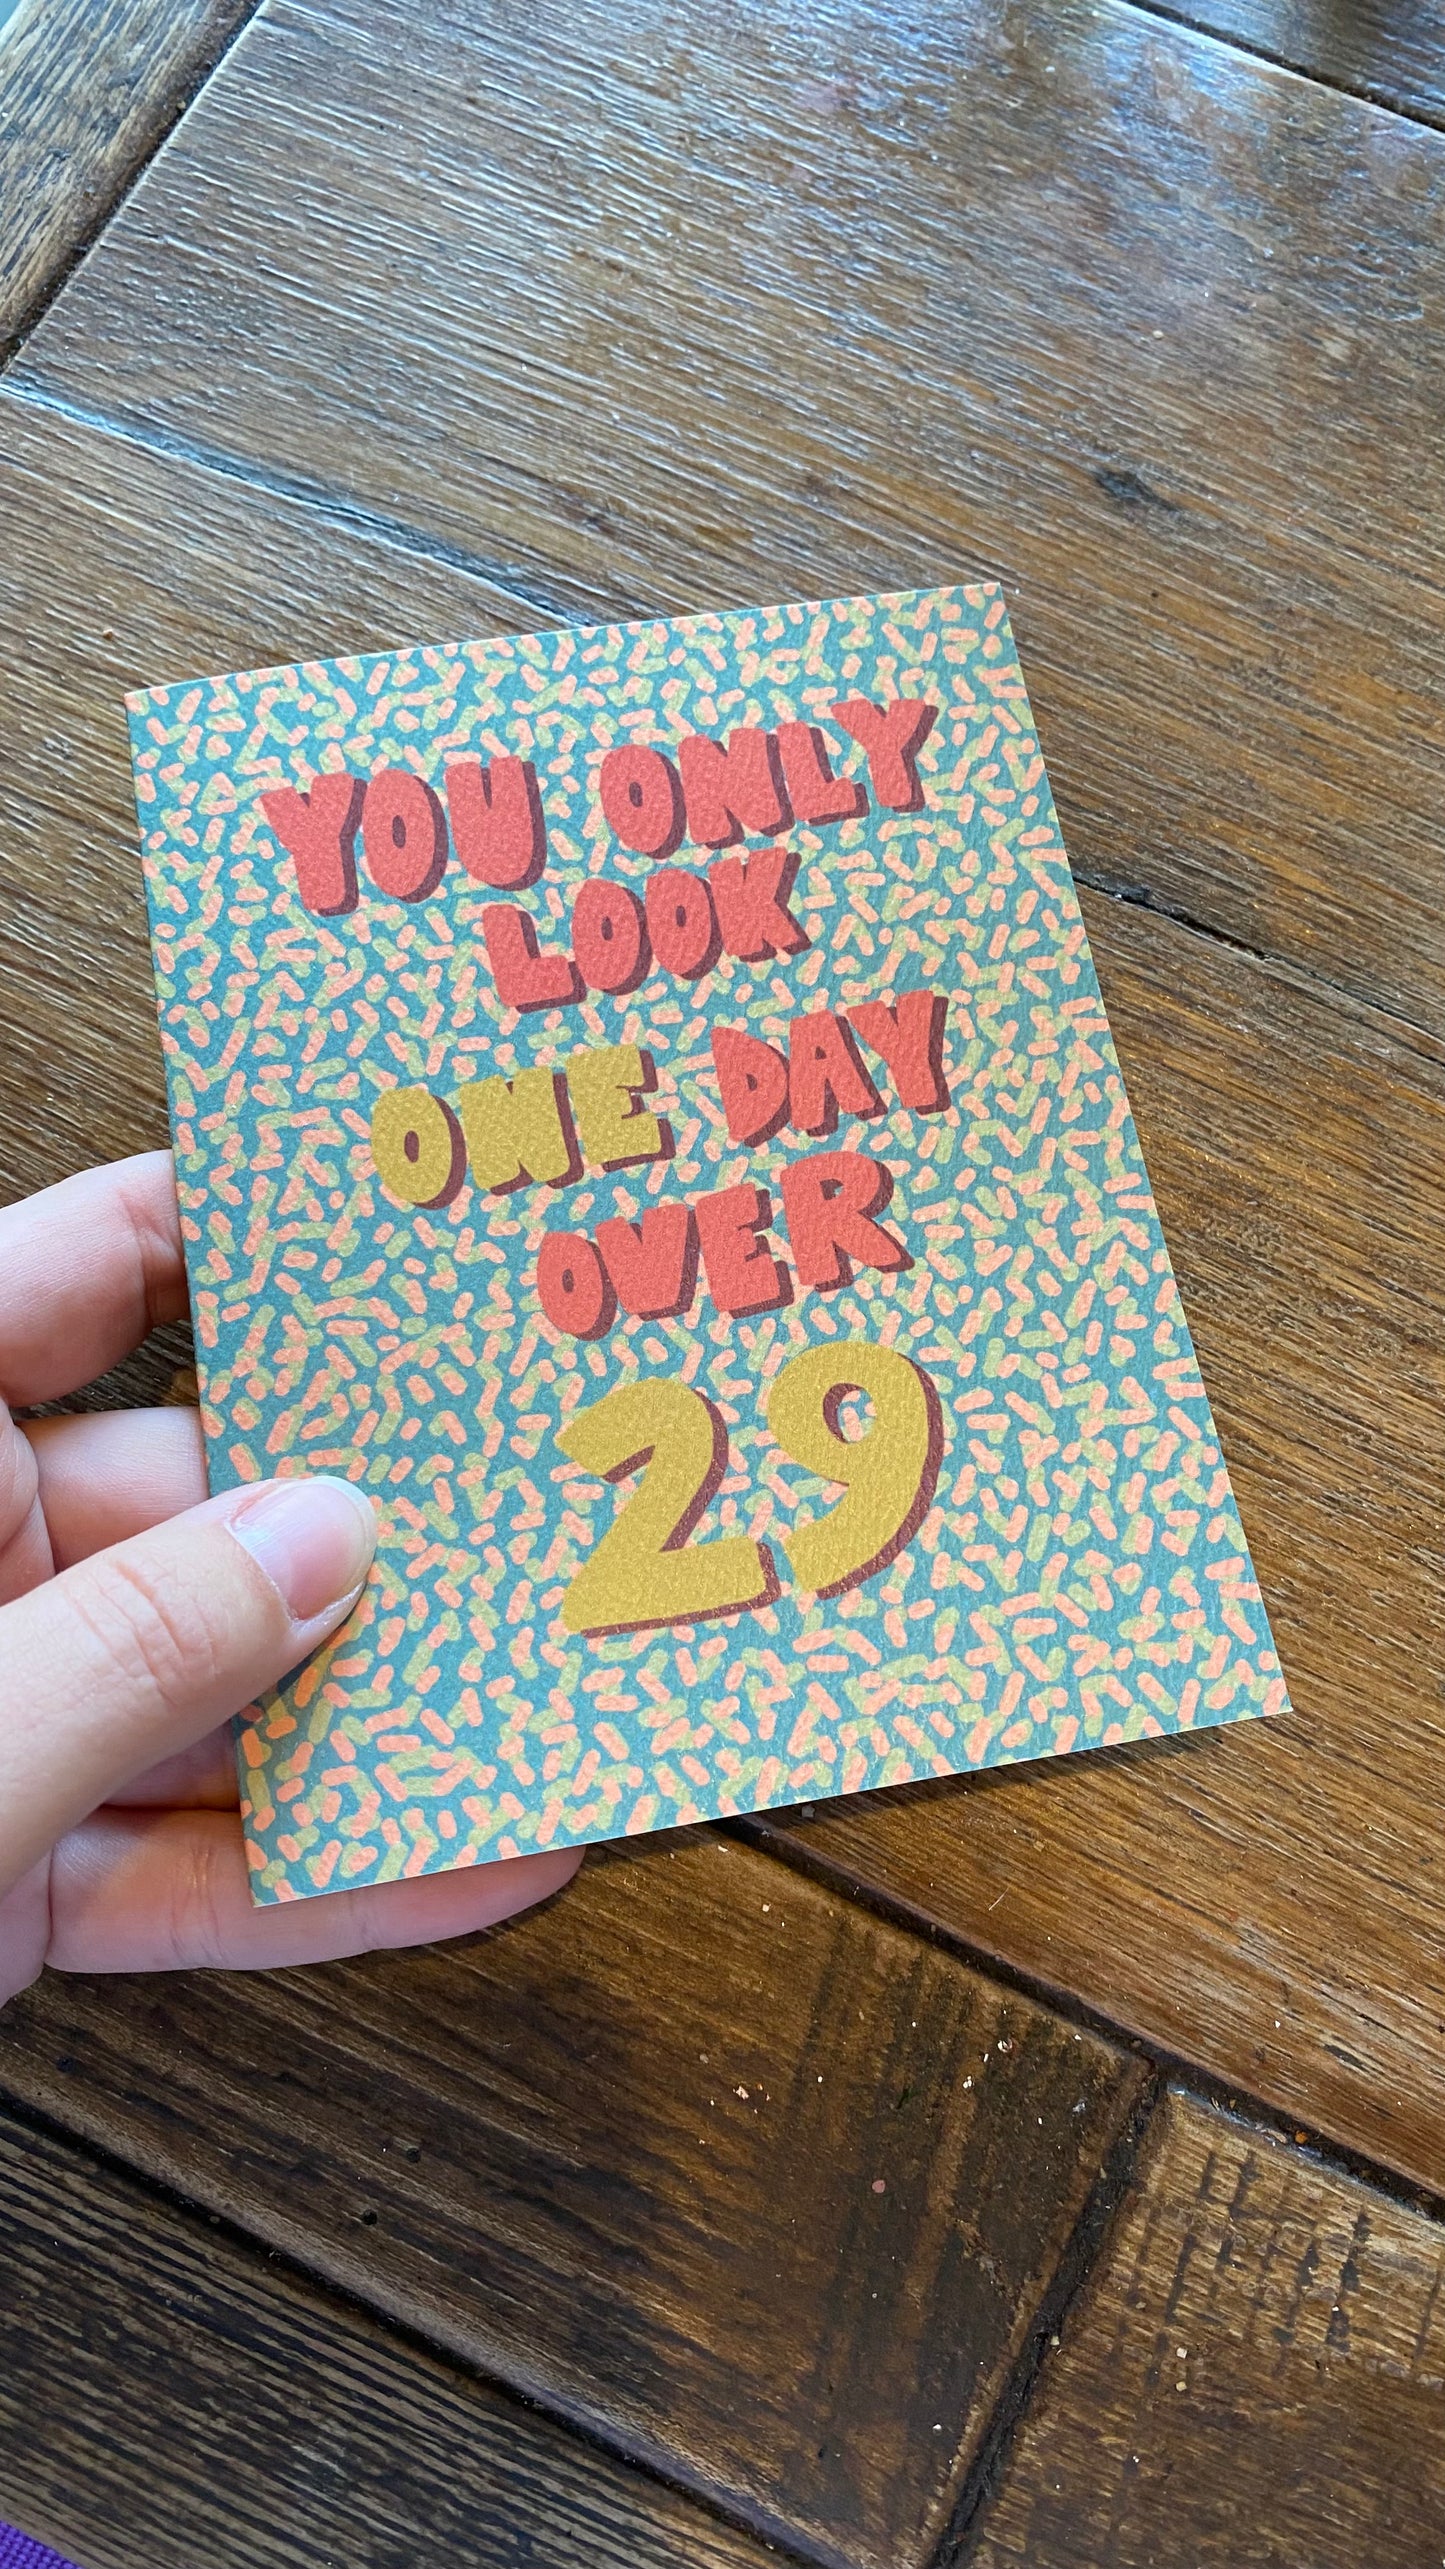 YOU ONLY
LOOK
ONE DAY
OVER
29